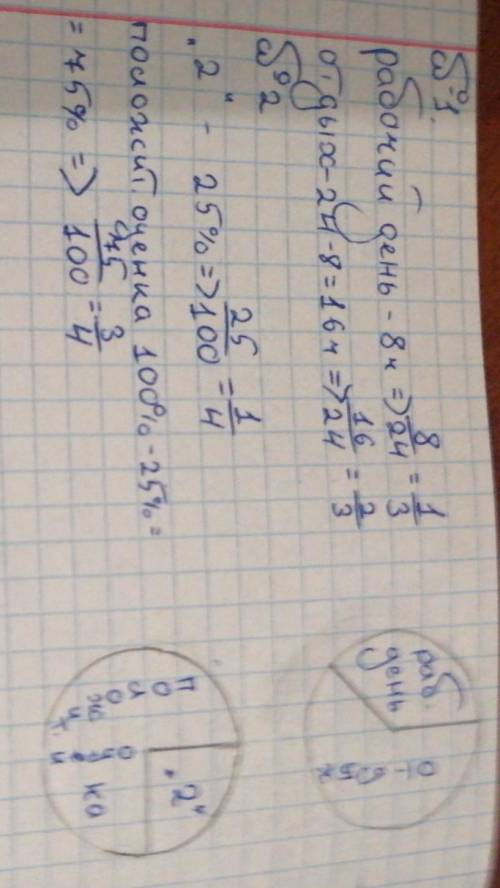 №1.
рабочий день - 8ч => 8/24 = 1/3
отдых - 24 - 8 = 16ч => 16/24 = 2/3
№2
„2“ - 25% => 25/100 = 1/4
положит. оценка 100% - 25% =
= 75% => 75/100 = 3/4
раб.
день
отдых
„2“
полож